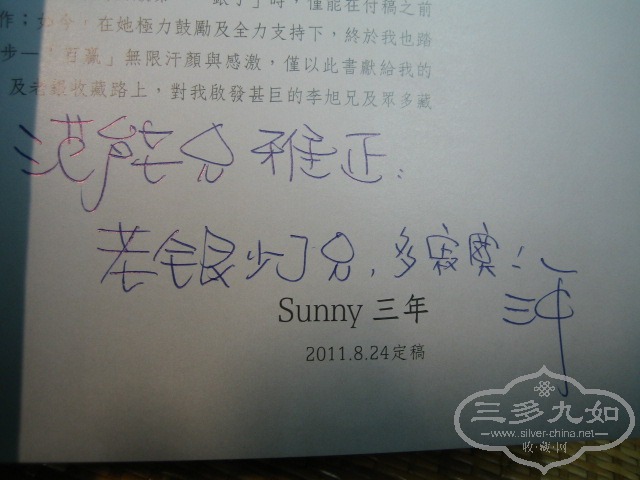 時，僅能在付稿之前
作；如今，在她極力鼓勵及全力支持下，終於我也踏
無限汗顏與感激，僅以此書獻給我的
及老銀收藏路上，對我啟發甚巨的李旭兄及眾多藏
兄 雅正：
老銀少了兄，多寂寞！
三年
Sunny 三年
2011.8.24定稿
三多九如
www.silver-china.net
收·藏·网